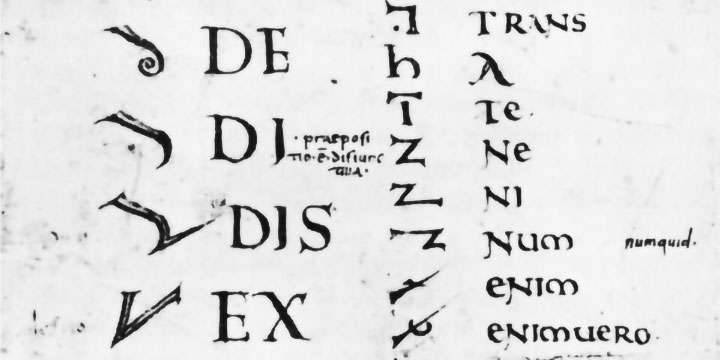 DE
DI · praeposi
tio·ē·disiunc
tiua·
DIS
EX
TRANS
A
TE
NE
NI
NUM numquid.
ENIM
ENIMUERO